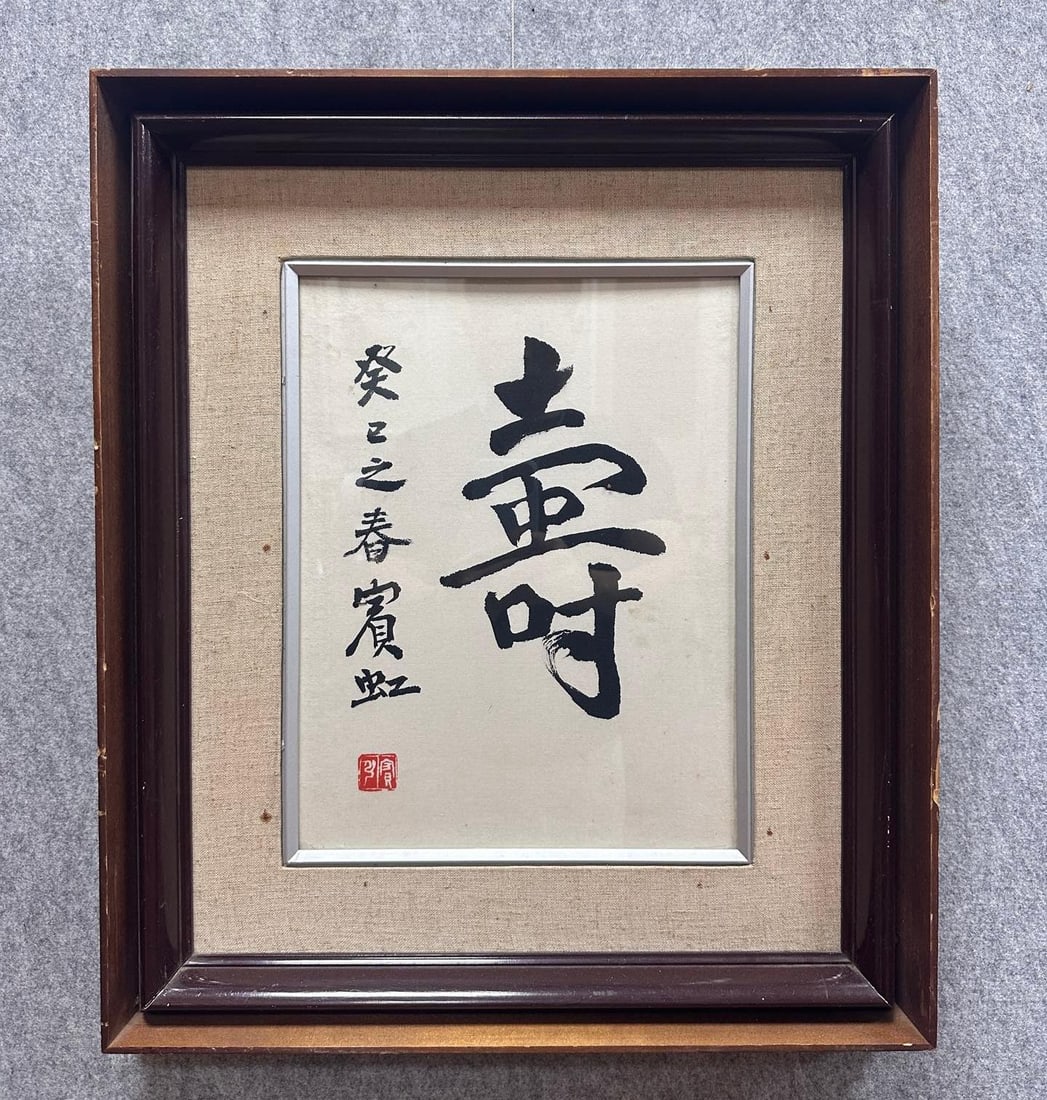 壽
癸巳之春賓虹
賓虹